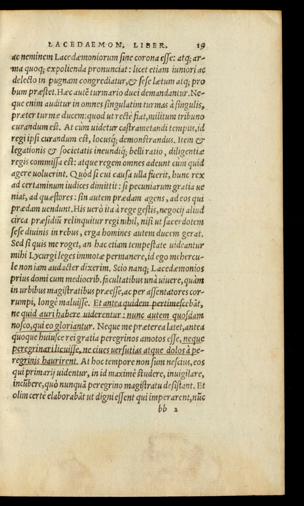 LACEDAEMON. LIBER. 19
ac neminem Lacedæmoniorum sine corona esse: atq; ar-
ma quoq; expolienda pronunciat: licet etiam iuniori ac
delecto in pugnam congrediatur, & sese lætum atq; pro
bum præstet. Hæc autē turmario duci demandantur. Ne-
que enim auditur in omnes singulatim turmas à singulis,
præter turmæ ducem: quod ut recte fiat, militum tribuno
curandum est. At cum uidetur castrametandi tempus, id
regi ipsi curandum est, locusq; demonstrandus. Item &
legationis & societatis ineundiq; belli ratio, diligentiæ
regis commissa est: atque regem omnes adeunt cum quid
agere uoluerint. Quòd si cui causa ulla fuerit, hunc rex
ad certaminum iudices dimittit: si pecuniarum gratia ue
niat, ad quæstores: sin autem prædam agens, ad eos qui
prædam uendunt. His uerò ita à rege gestis, negocij aliud
circa præsidiū relinquitur regi nihil, nisi ut sacerdotem
sese diuinis in rebus, erga homines autem ducem gerat.
Sed si quis me roget, an hac etiam tempestate uideantur
mihi Lycurgi leges immotæ permanere, id ego mehercu-
le non iam audacter dixerim. Scio nanq; Lacedæmonios
prius domi cum mediocrib. facultatibus unà uiuere, quàm
in urbibus magistratibus præesse, ac per assentatores cor-
rumpi, longè maluisse. Et antea quidem pertimescebāt,
ne quid auri habere uiderentur: nunc autem quosdam
nosco, qui eo gloriantur. Neque me præterea latet, antea
quoque huiusce rei gratia peregrinos amotos esse, neque
peregrinari licuisse, ne ciues uersutias atque dolos à pe-
regrinis haurirent. At hoc tempore non sum nescius, eos
qui primarij uidentur, in id maximè studere, inuigilare,
incūbere, quò nunquā peregrino magistratu desistant. Et
olim certè elaborabāt ut digni essent qui imperarent, nūc
bb 2